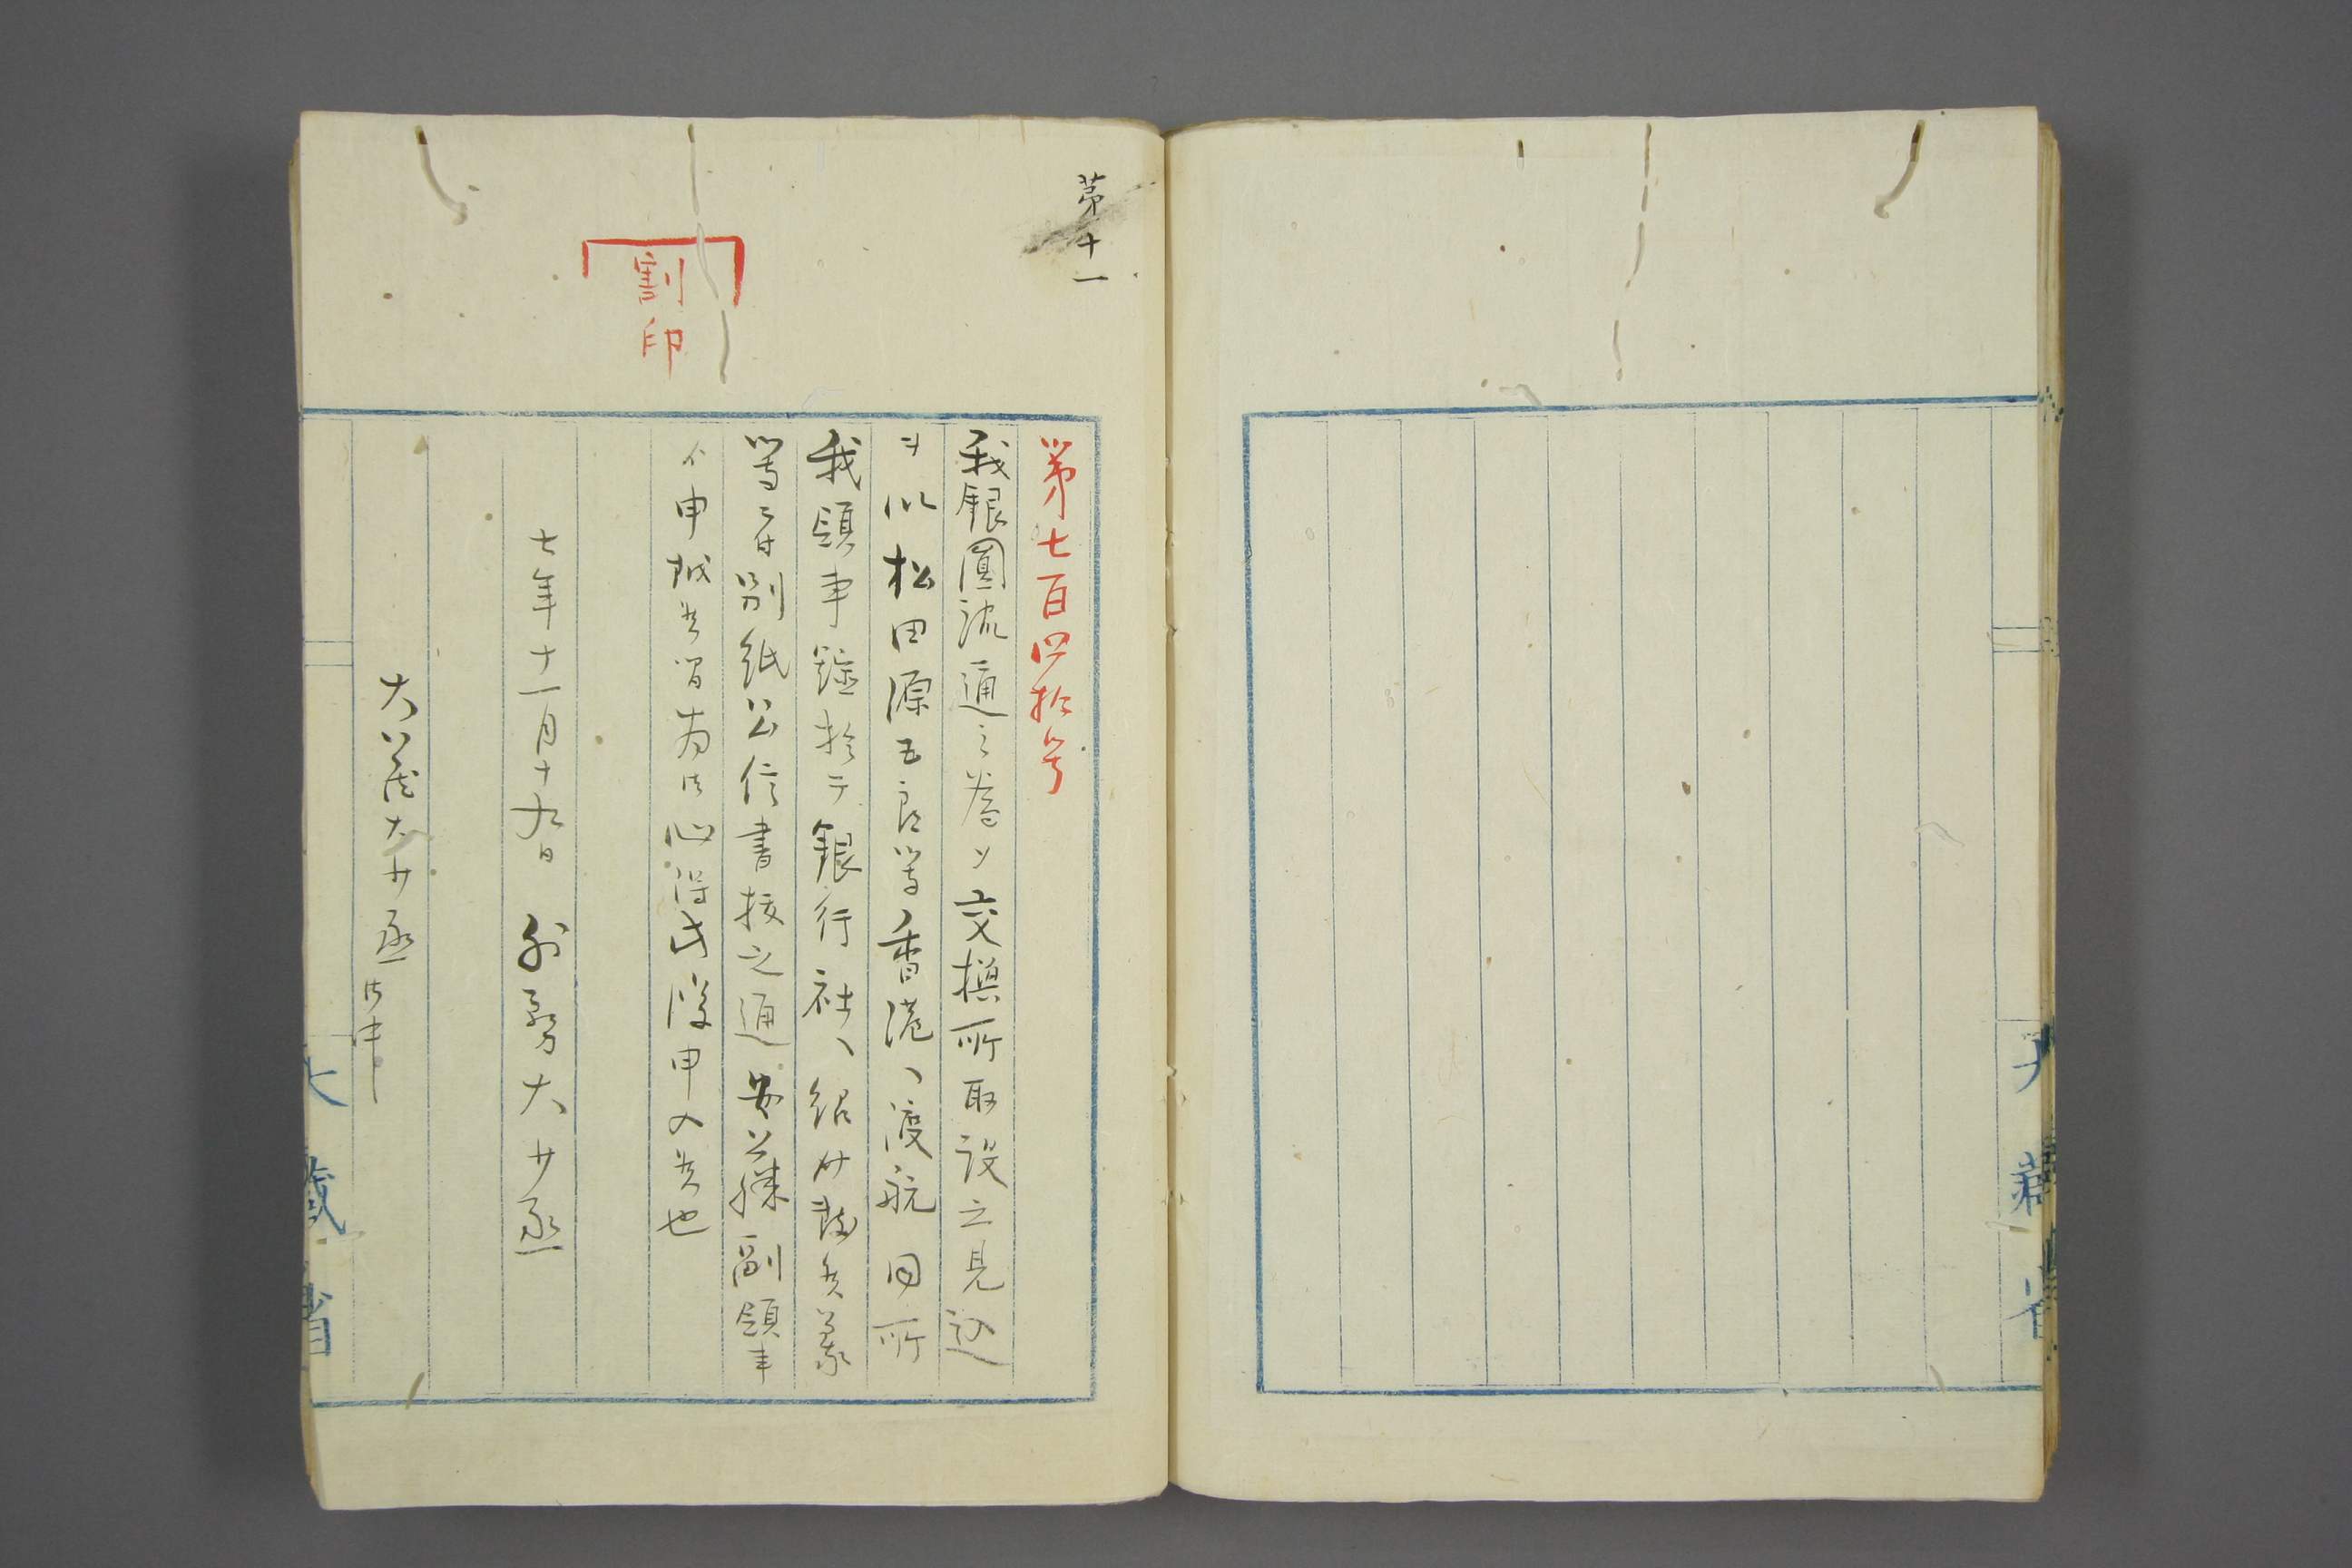 第十一
割印
第七百四拾号
我銀圓流通之為メ交換所取設之見込
ヲ以松田源五良等香港ヘ渡航同所
我領事館於テ銀行社ヘ紹介致候義
等二付別紙公信書抜之通安藤副領事
申越候間為御心得此段申入候也
七年十一月十九日 外務大少丞
大蔵大少丞御中
大蔵省
大蔵省